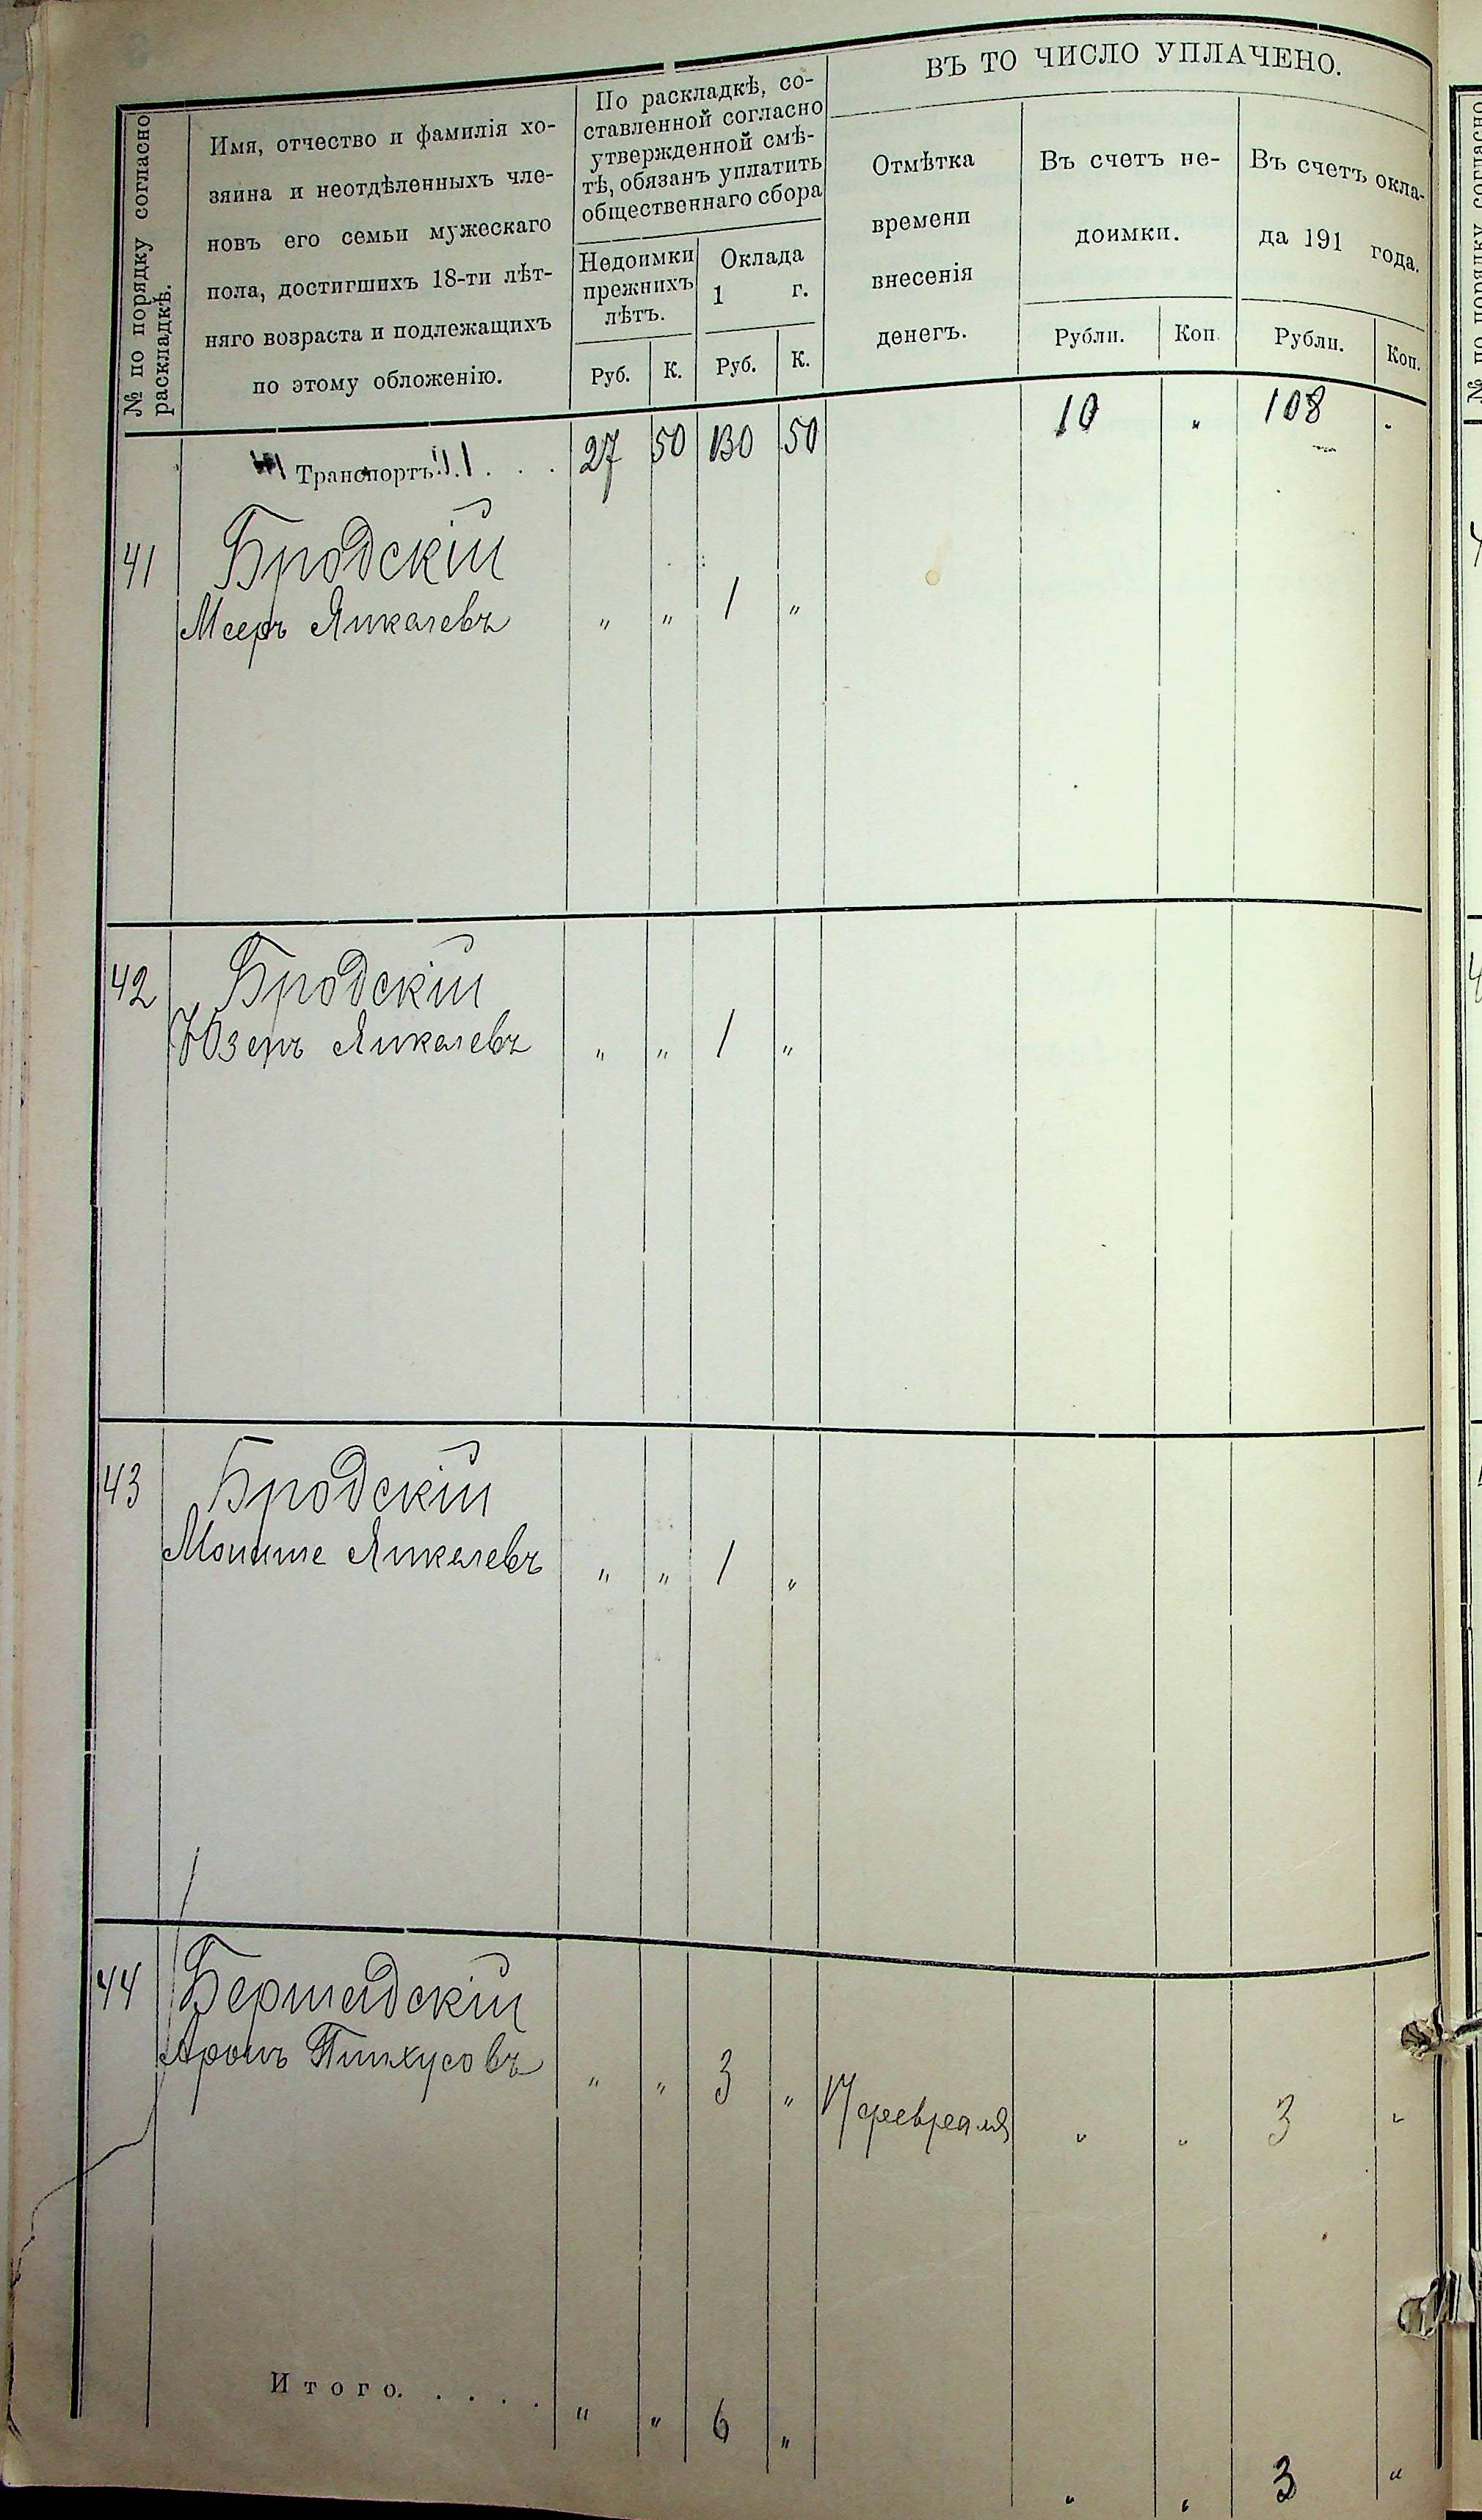 № по порядку согласно
раскладкѣ.
Имя, отчество и фамилія хо-
зяина и неотдѣленныхъ чле-
новъ его семьи мужескаго
пола, достигшихъ 18-ти лѣт-
няго возраста и подлежащихъ
по этому обложенію.
По раскладкѣ, со-
ставленной согласно
утвержденной смѣ-
тѣ, обязанъ уплатить
общественнаго сбора
Недоимки
прежнихъ
лѣтъ.
Руб. К.
Оклада
1 г.
Руб. К.
ВЪ ТО ЧИСЛО УПЛАЧЕНО.
Отмѣтка
времени
внесенія
денегъ.
Въ счетъ не-
доимки.
Рубли. Коп.
Въ счетъ окла-
да 191 года.
Рубли. Коп.
Транспортъ . . . 27 50 130 50 10 „ 108 -
41 Бродскій
Мееръ Янкелевъ „ „ 1 „
42 Бродскій
Юзепъ Янкелевъ „ „ 1 „
43 Бродскій
Мошше Янкелевъ „ „ 1 „
44 Бершадскій
Аронъ Пинхусовъ „ „ 3 „ 17 февраля „ „ 3 „
Итого. . . . . „ „ 6 „ „ „ 3 „